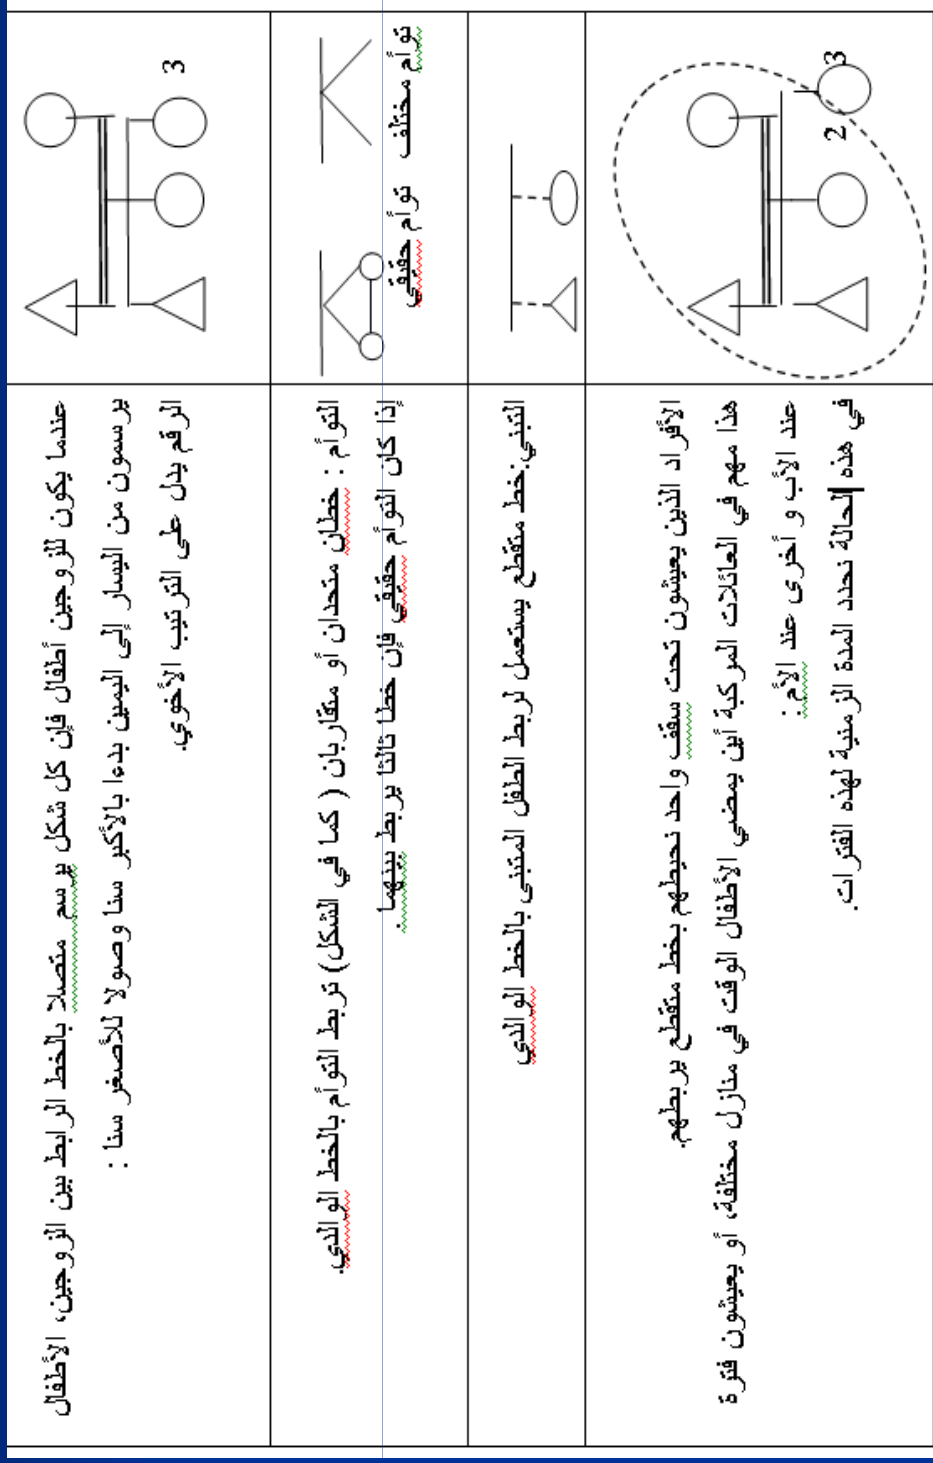 3
عندما يكون للزوجين أطفال فإن كل شكل يرسم متصلا بالخط الرابط بين الزوجين، الأطفال
يرسمون من اليسار إلى اليمين بدءا بالأكبر سنا وصولا للأصغر سنا :
الرقم يدل على الترتيب الأخوي.
توأم مختلف توأم حقيقي
التوأم : خطان متحدان أو متقاربان ( كما في الشكل) تربط التوأم بالخط الوالدي.
إذا كان التوأم حقيقي فإن خطا ثالثا يربط بينهما .
التبني:خط متقطع يستعمل لربط الطفل المتبنى بالخط الوالدي
3
2
الأفراد الذين يعيشون تحت سقف واحد نحيطهم بخط متقطع يربطهم.
هذا مهم في العائلات المركبة أين يمضي الأطفال الوقت في منازل مختلفة، أو يعيشون فترة
عند الأب و أخرى عند الأم :
في هذه الحالة نحدد المدة الزمنية لهذه الفترات.